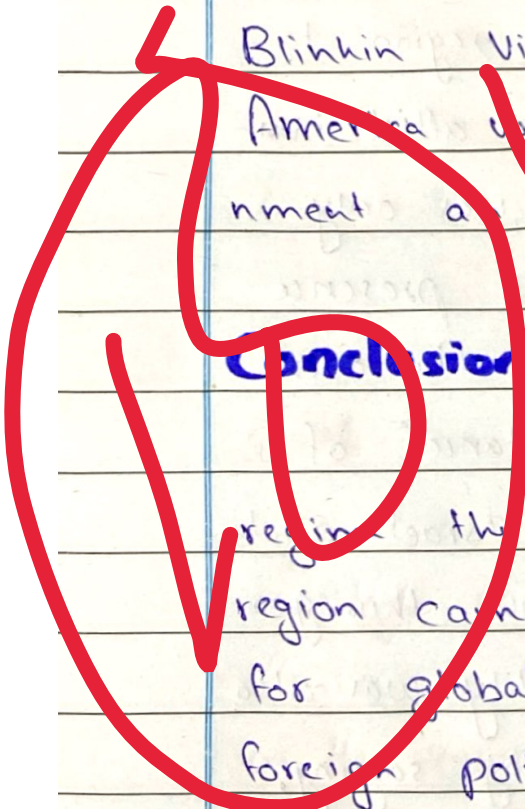 Blinkin Vi
America un
nment a
Conclusion
regime the
region cann
for globa
foreign poli